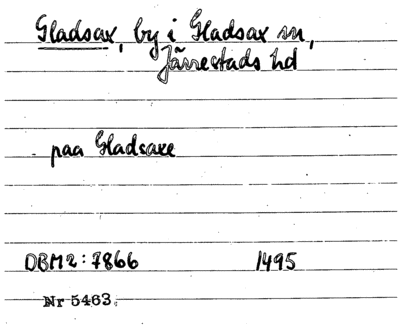 Gladsax, by i Gladsax sn,
Järrestads hd
paa Gladsaxe
DBM2:7866 1495
Nr 5463.